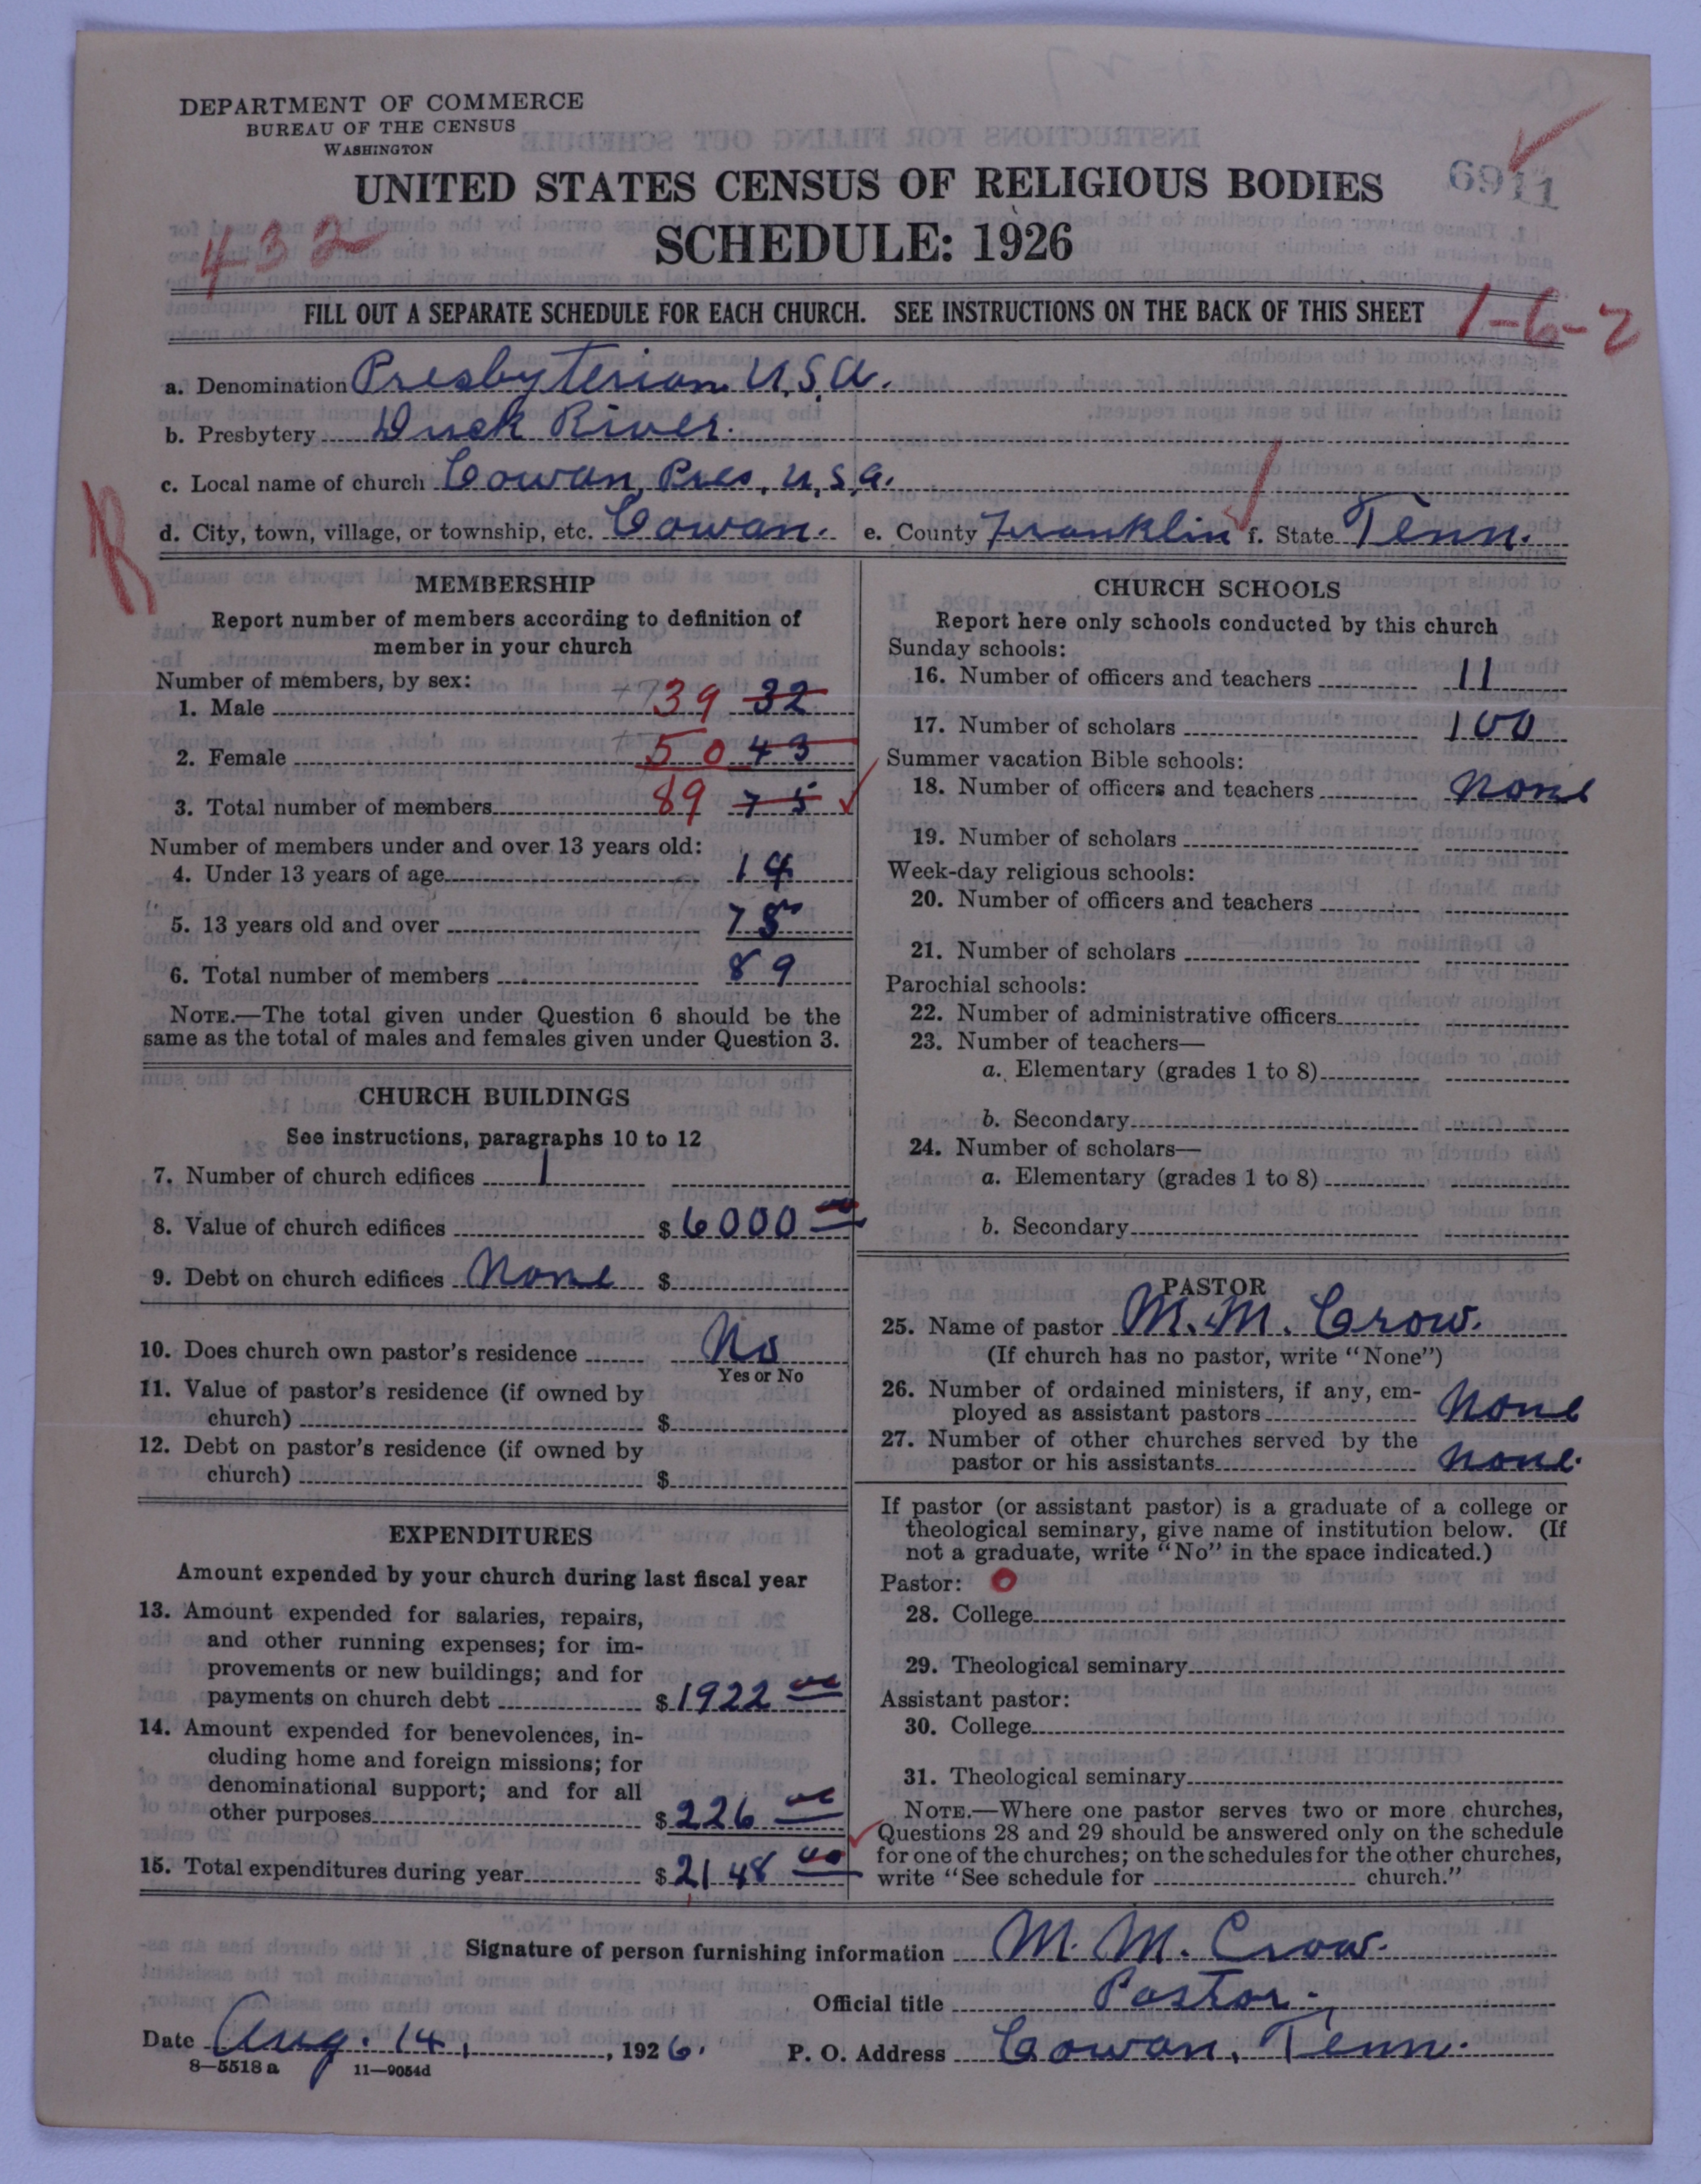 DEPARTMENT OF COMMERCE
BUREAU OF THE CENSUS
WASHINGTON
UNITED STATES CENSUS OF RELIGIOUS BODIES
6911
SCHEDULE: 1926
432
FILL OUT A SEPARATE SCHEDULE FOR EACH CHURCH. SEE INSTRUCTIONS ON THE BACK OF THIS SHEET
1-6-2
a. Denomination Presbyterian U.S.A.
b. Presbytery Duck River.
c. Local name of church Cowan, Pres, U,S,A.
d. City, town, village, or township, etc. Cowan. e. County Franklin f. State Tenn.
MEMBERSHIP
Report number of members according to definition of
member in your church
Number of members, by sex:
1. Male 39 32
2. Female 50 43
3. Total number of members 89 75
Number of members under and over 13 years old:
4. Under 13 years of age 14
5. 13 years old and over 75
6. Total number of members 89
NOTE.—The total given under Question 6 should be the
same as the total of males and females given under Question 3.
CHURCH BUILDINGS
See instructions, paragraphs 10 to 12
7. Number of church edifices 1
8. Value of church edifices $6000 00
9. Debt on church edifices None $
10. Does church own pastor's residence No
Yes or No
11. Value of pastor's residence (if owned by
church) $
12. Debt on pastor's residence (if owned by
church) $
EXPENDITURES
Amount expended by your church during last fiscal year
13. Amount expended for salaries, repairs,
and other running expenses; for im-
provements or new buildings; and for
payments on church debt $1922 00
14. Amount expended for benevolences, in-
cluding home and foreign missions; for
denominational support; and for all
other purposes $226 00
15. Total expenditures during year $2148 00
CHURCH SCHOOLS
Report here only schools conducted by this church
Sunday schools:
16. Number of officers and teachers 11
17. Number of scholars 100
Summer vacation Bible schools:
18. Number of officers and teachers None
19. Number of scholars
Week-day religious schools:
20. Number of officers and teachers
21. Number of scholars
Parochial schools:
22. Number of administrative officers
23. Number of teachers—
a. Elementary (grades 1 to 8)
b. Secondary
24. Number of scholars—
a. Elementary (grades 1 to 8)
b. Secondary
PASTOR
25. Name of pastor M. M. Crow.
(If church has no pastor, write "None")
26. Number of ordained ministers, if any, em-
ployed as assistant pastors None
27. Number of other churches served by the
pastor or his assistants None.
If pastor (or assistant pastor) is a graduate of a college or
theological seminary, give name of institution below. (If
not a graduate, write "No" in the space indicated.)
Pastor: O
28. College
29. Theological seminary
Assistant pastor:
30. College
31. Theological seminary
NOTE.—Where one pastor serves two or more churches,
Questions 28 and 29 should be answered only on the schedule
for one of the churches; on the schedules for the other churches,
write "See schedule for church."
Signature of person furnishing information M. M. Crow.
Official title Pastor.
Date Aug. 14, 1926. P. O. Address Cowan, Tenn.
8—5518 a 11—9054d